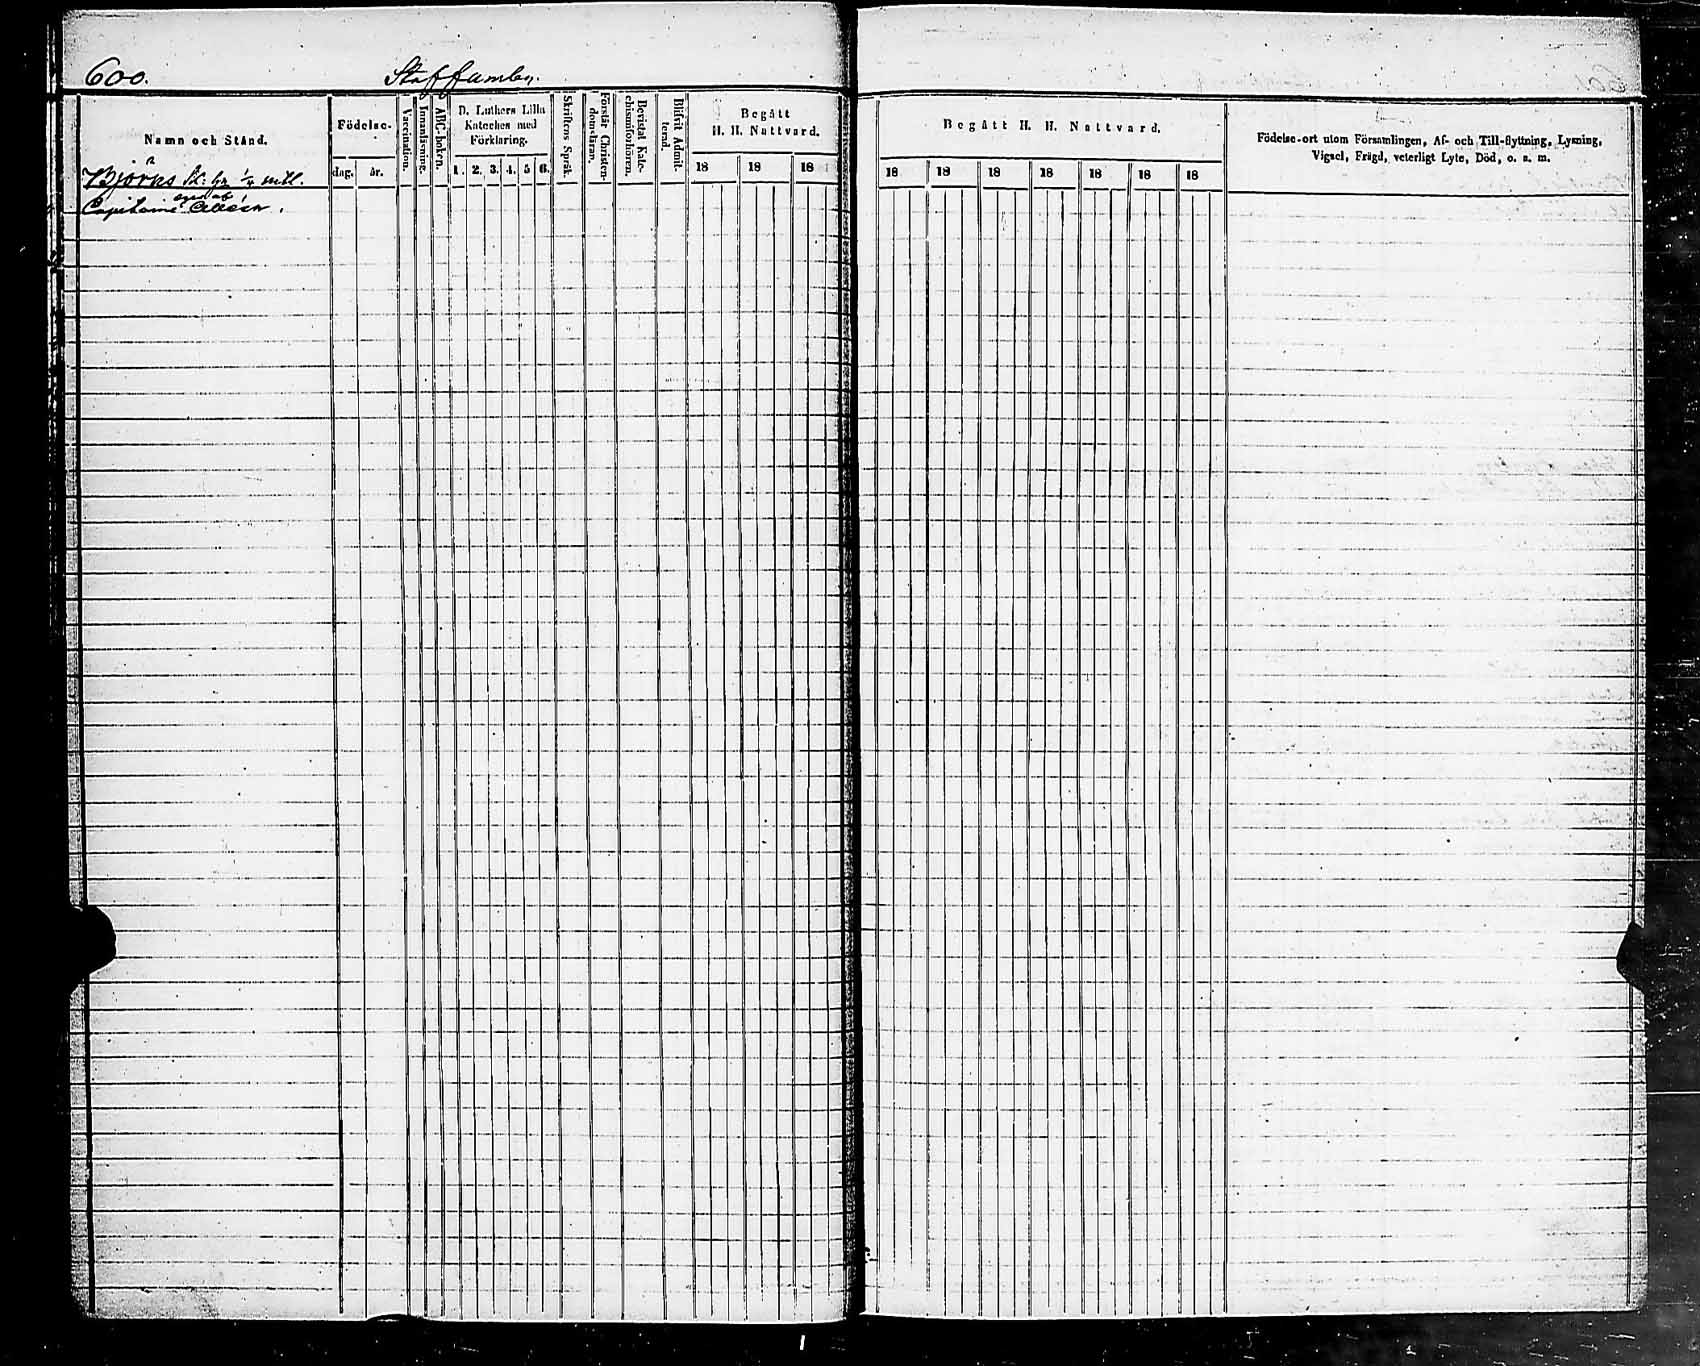 600.
Namn och Stånd.
Födelse-
dag.
år.
Vaccination.
Innanläsning.
ABC-boken.
D. Luthers Lilla
Kateches med
Förklaring.
1. 2. 3. 4. 5 6.
Skriftens Språk.
Förstår Christen-
domsläran.
Bevistat Kate-
chismiförhören.
Blifvit Admit-
terad.
Begått
H. H. Nattvard.
18 18 18
Björns 1/4 mtl.
Capitaine
Begått H. H. Nattvard.
18 18 18 18 18 18 18
Födelse-ort utom Församlingen, Af- och Till-flyttning, Lysning,
Vigsel, Frägd, veterligt Lyte, Död, o. s. m.